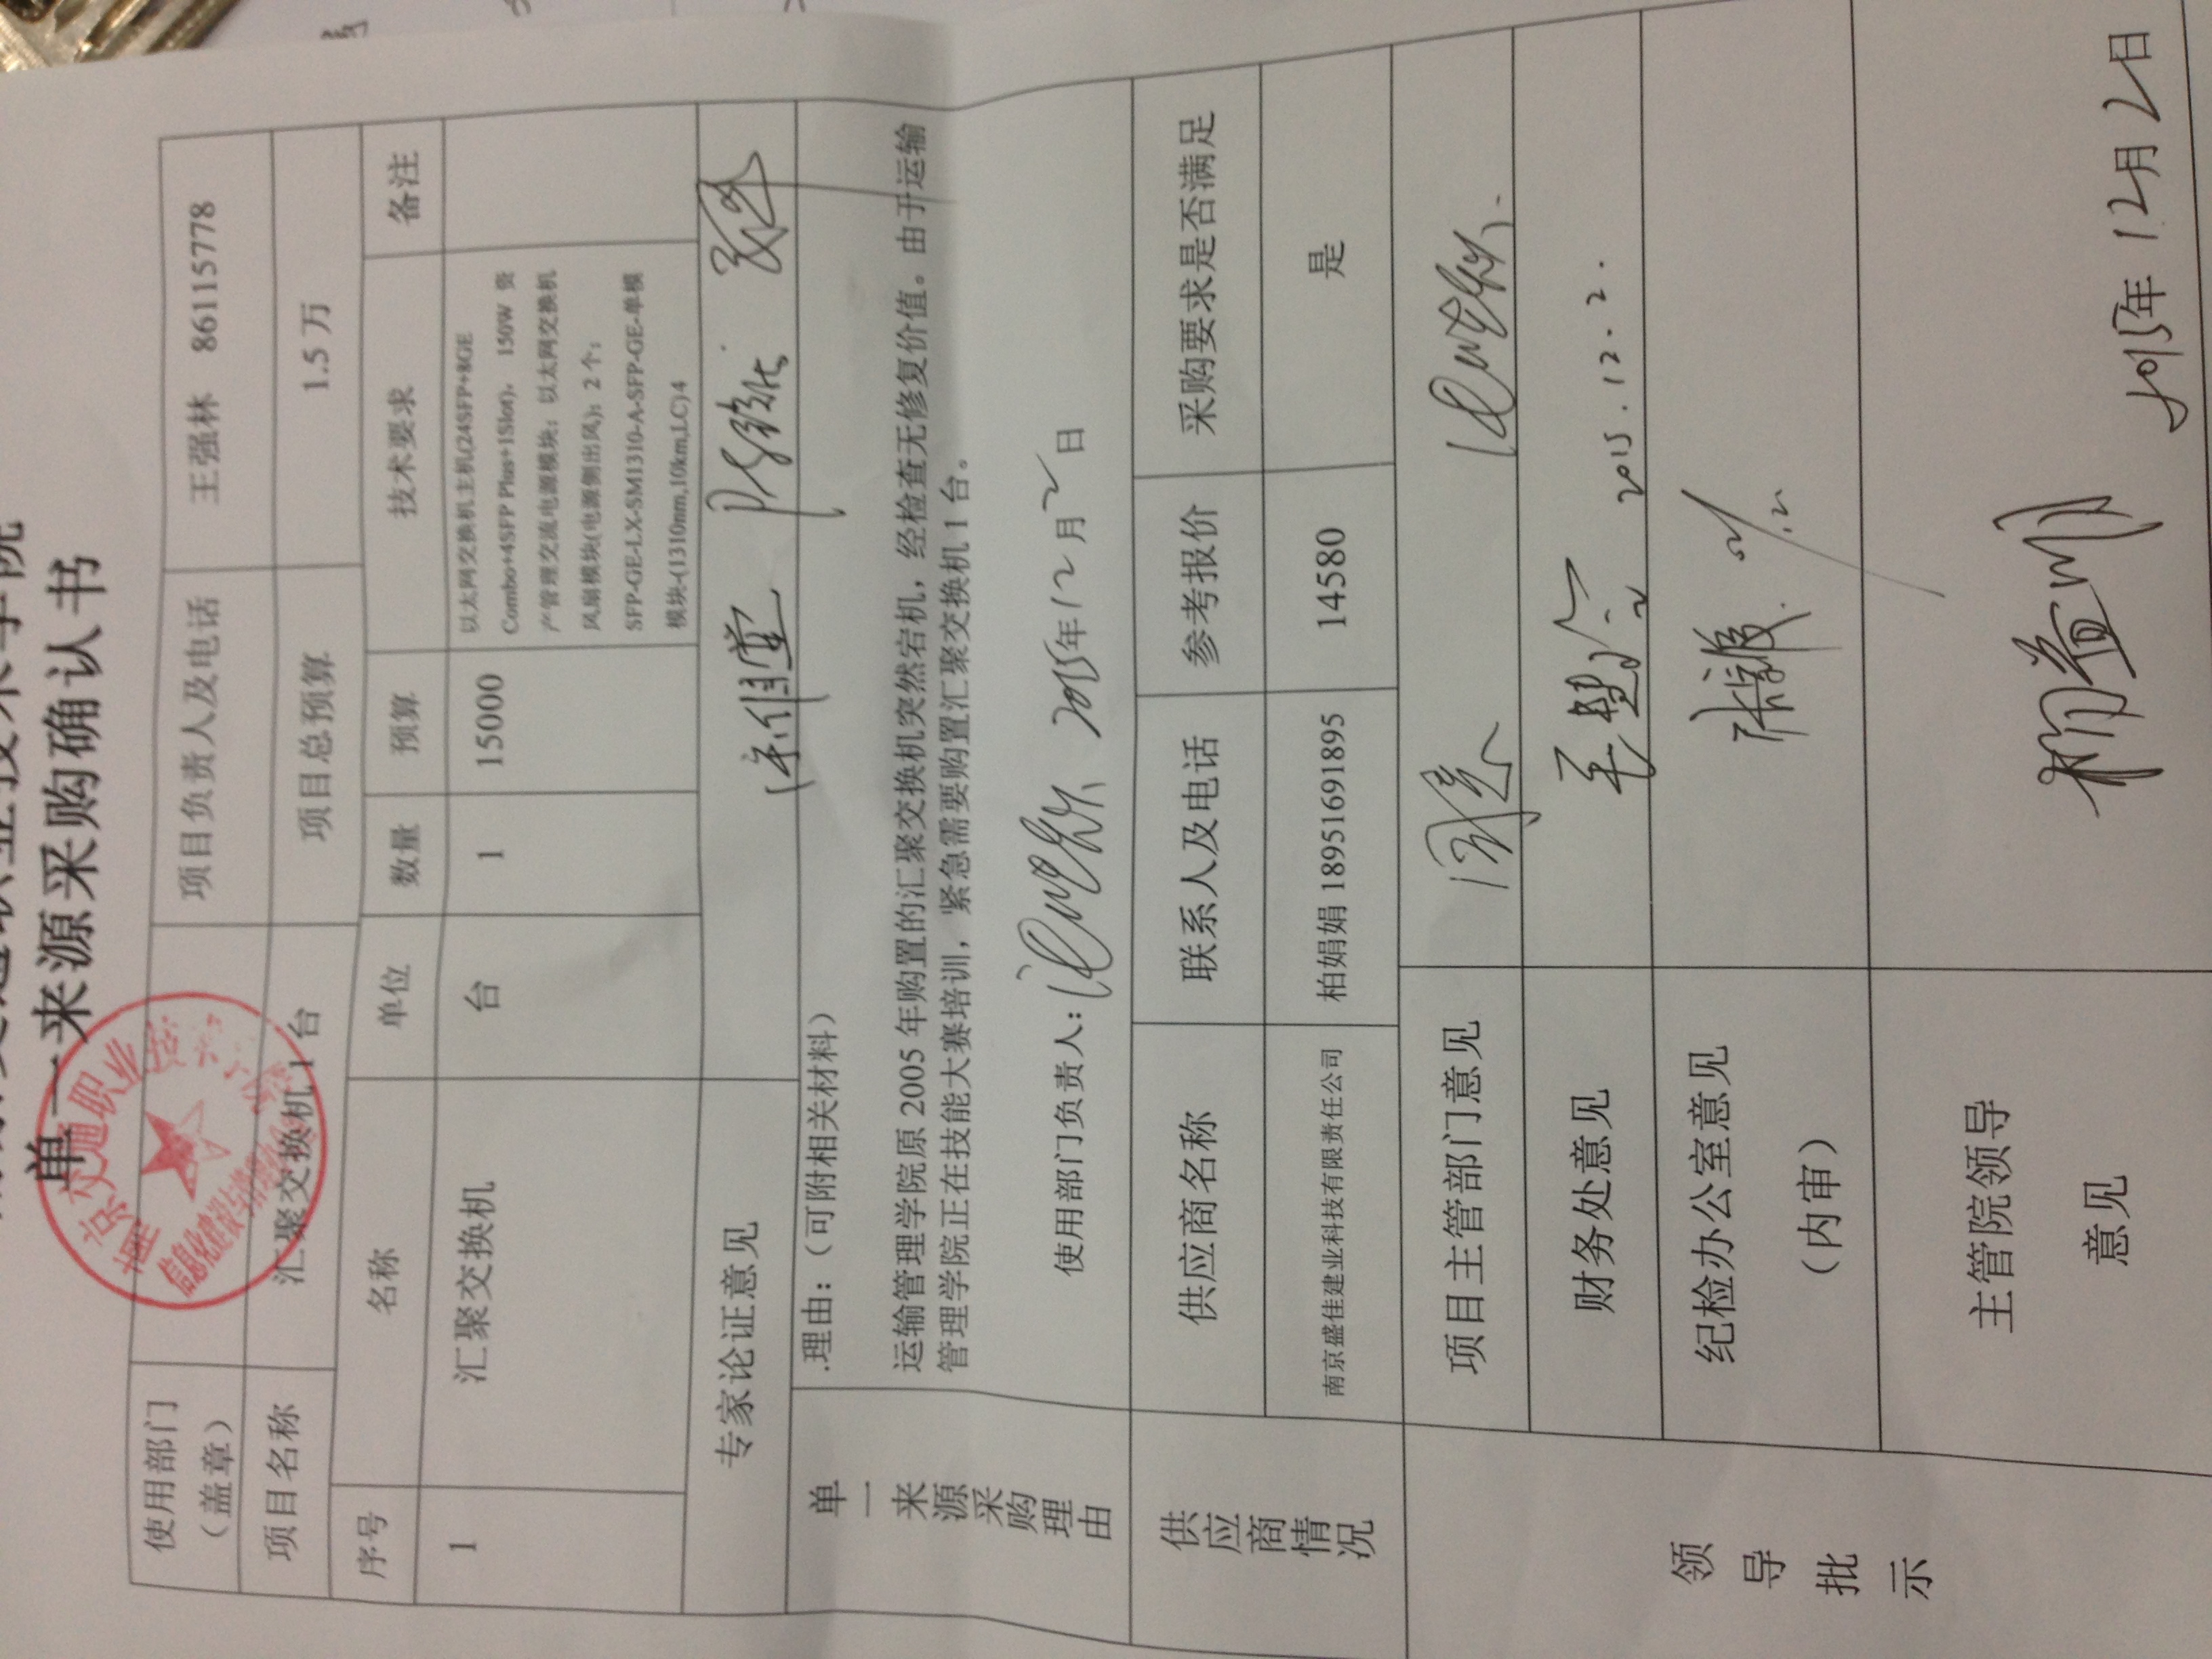 单一来源采购确认书
使用部门
（盖章）
项目负责人及电话
王强林 86115778
项目名称
汇聚交换机 1 台
项目总预算
1.5 万
序号
名称
单位
数量
预算
技术要求
备注
1
汇聚交换机
台
1
15000
以太网交换机主机(24SFP+8GE
Combo+4SFP Plus+1Slot)， 150W 资
产管理交流电源模块；以太网交换机
风扇模块(电源侧出风)；2 个；
SFP-GE-LX-SM1310-A-SFP-GE-单模
模块-(1310nm,10km,LC) 4
专家论证意见
单一来源采购理由
.理由：（可附相关材料）
运输管理学院原 2005 年购置的汇聚交换机突然宕机，经检查无修复价值。由于运输
管理学院正在技能大赛培训，紧急需要购置汇聚交换机 1 台。
使用部门负责人：
2015年12月2日
供应商情况
供应商名称
联系人及电话
参考报价
采购要求是否满足
南京盛佳建业科技有限责任公司
柏娟娟 18951691895
14580
是
领导批示
项目主管部门意见
同意
财务处意见
2015.12.2.
纪检办公室意见
（内审）
主管院领导
意见
2015年12月2日